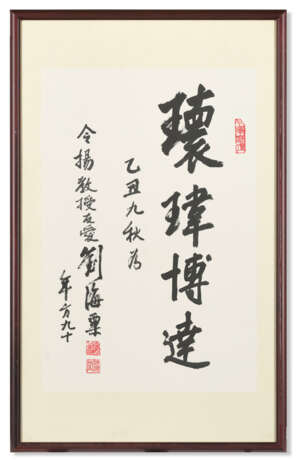 瓌瑋博達
乙丑九秋為
令揚教授友愛
劉海粟
年方九十